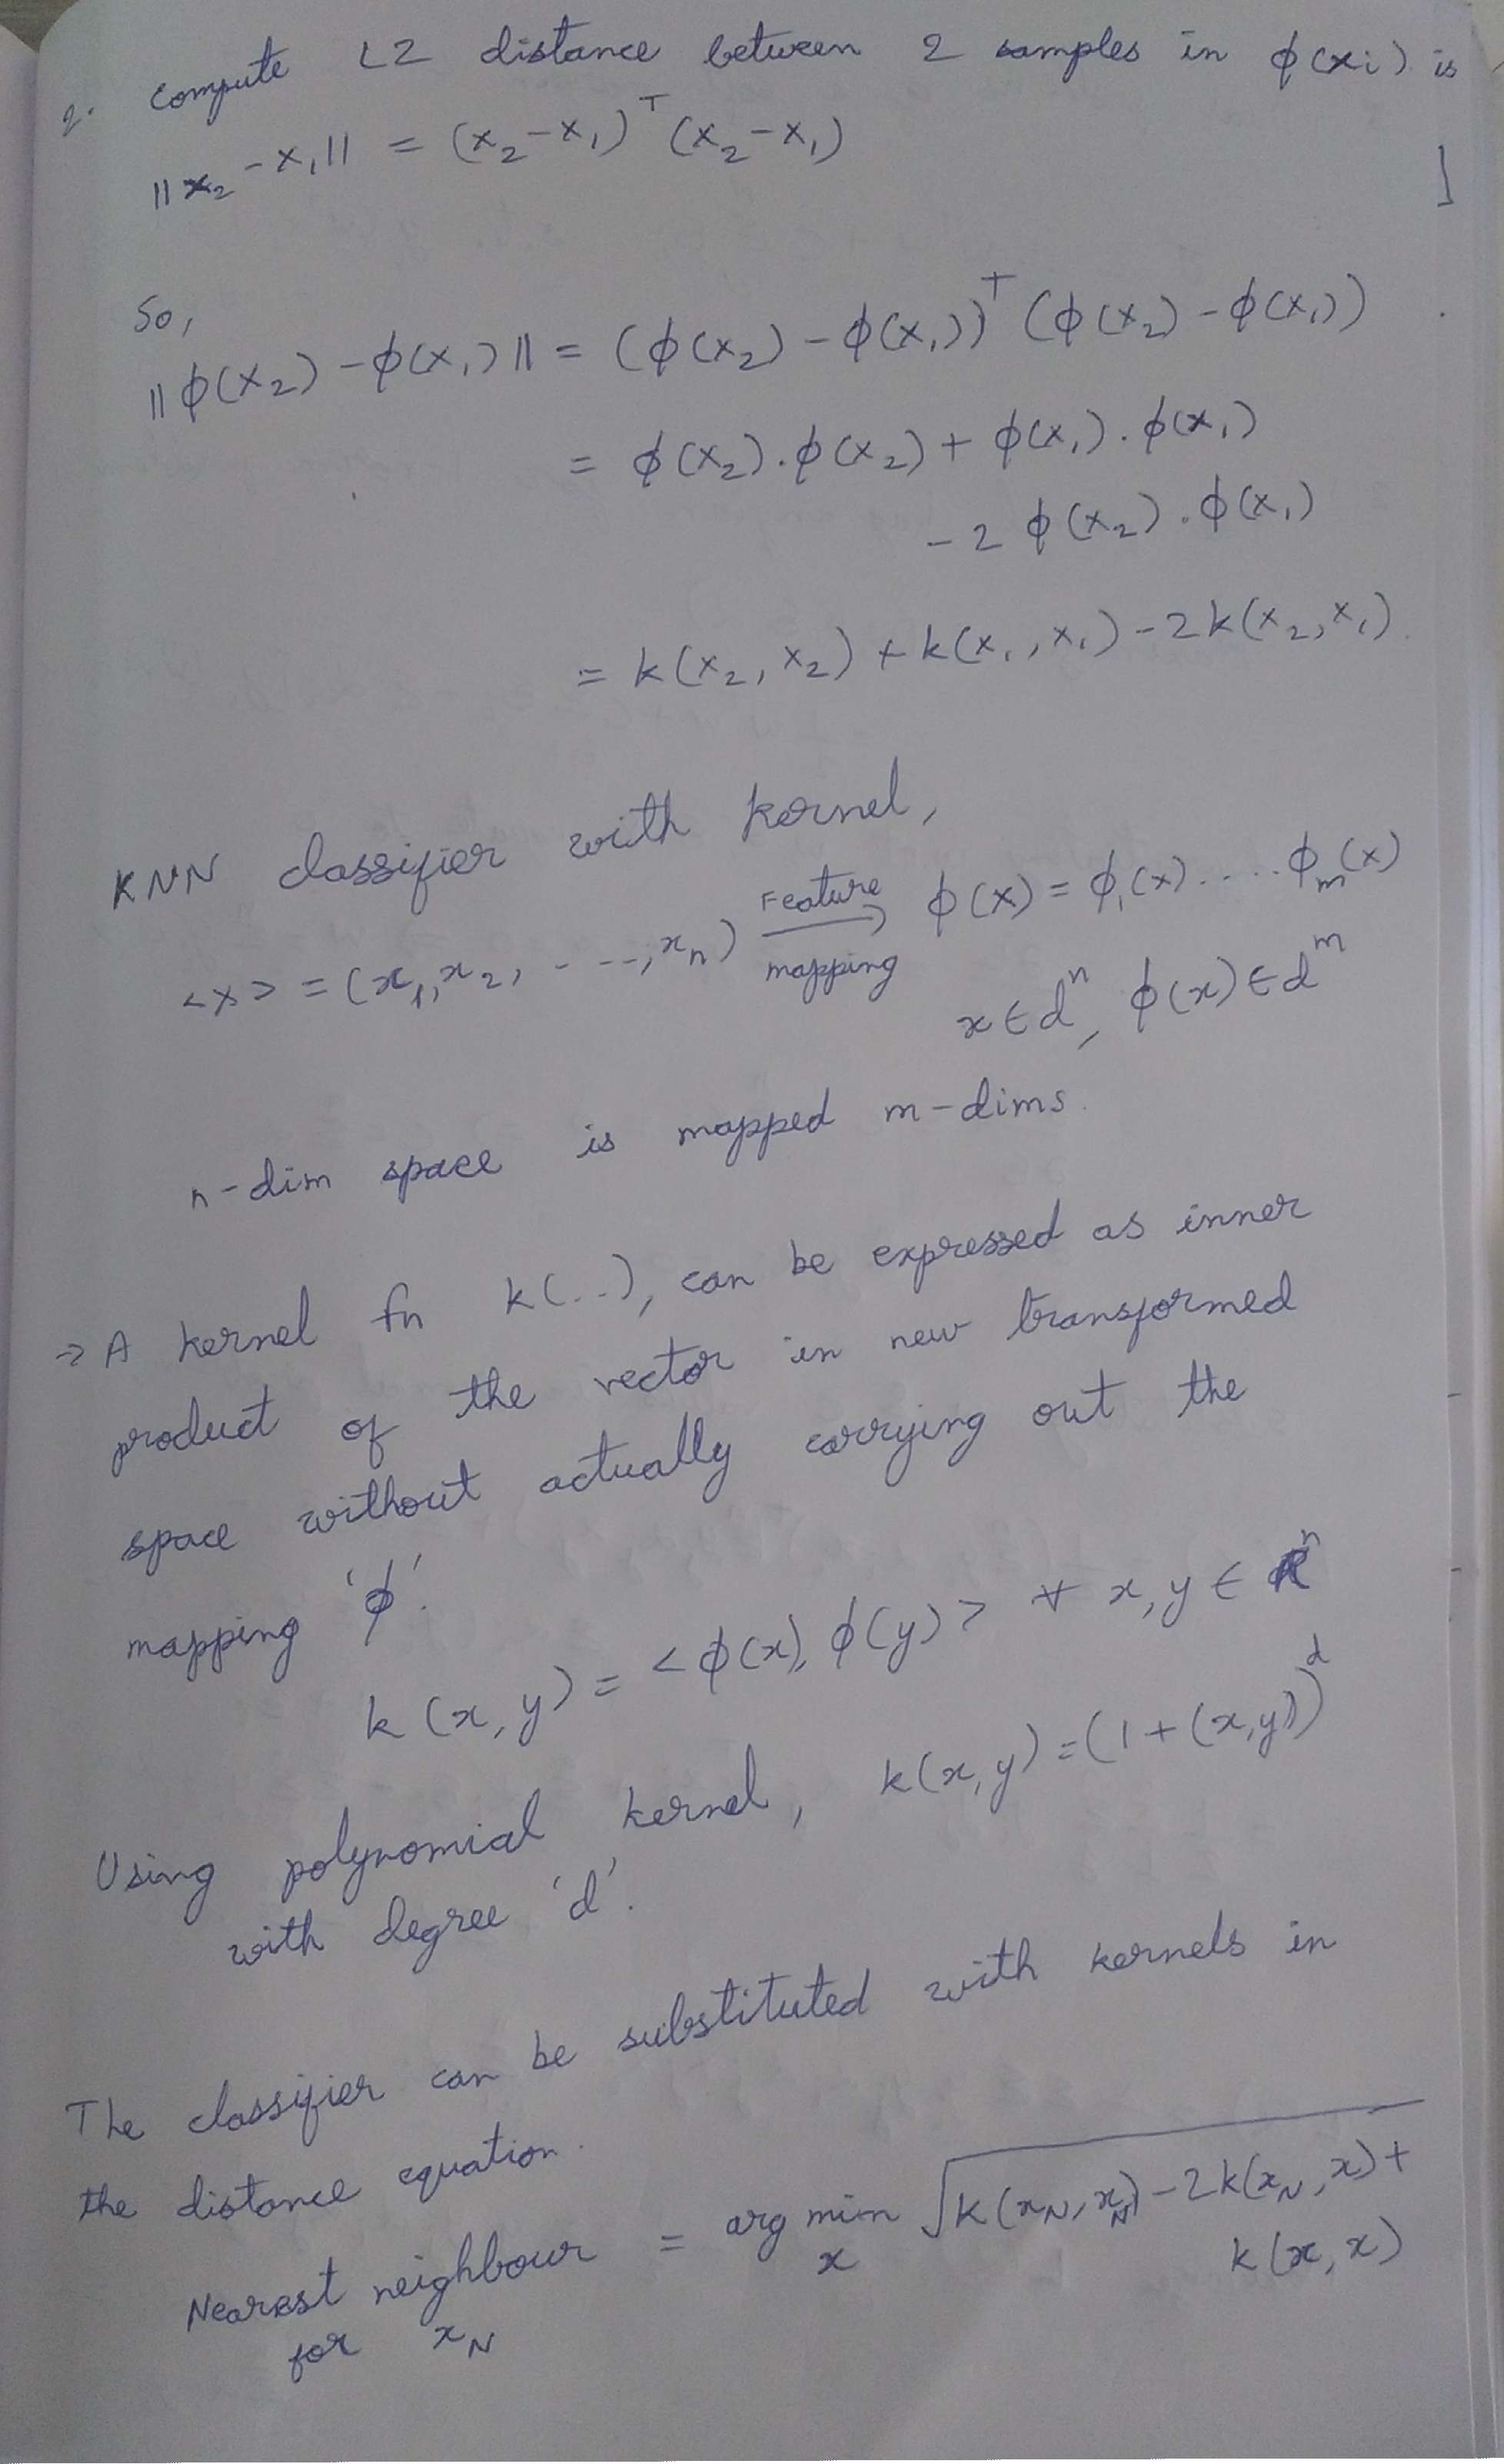 2. Compute L2 distance between 2 samples in ϕ(xi) is
||x₂ - x₁|| = (x₂ - x₁)ᵀ (x₂ - x₁)
So,
||ϕ(x₂) - ϕ(x₁)|| = (ϕ(x₂) - ϕ(x₁))ᵀ (ϕ(x₂) - ϕ(x₁))
= ϕ(x₂).ϕ(x₂) + ϕ(x₁).ϕ(x₁)
- 2 ϕ(x₂).ϕ(x₁)
= k(x₂, x₂) + k(x₁, x₁) - 2k(x₂, x₁)
KNN classifier with kernel,
<x> = (x₁, x₂, - - --, xₙ) Feature mapping → ϕ(x) = ϕ₁(x).....ϕₘ(x)
x ∈ dⁿ, ϕ(x) ∈ dᵐ
n-dim space is mapped m-dims.
→ A kernel fn k(..), can be expressed as inner
product of the vector in new transformed
space without actually carrying out the
mapping 'ϕ'.
k(x, y) = <ϕ(x), ϕ(y)> ∀ x, y ∈ Rⁿ
Using polynomial kernel, k(x, y) = (1 + (x,y))ᵈ
with degree 'd'.
The classifier can be substituted with kernels in
the distance equation.
Nearest neighbour = arg min √k(x_N, x_N) - 2k(x_N, x) +
for x_N x k(x, x)